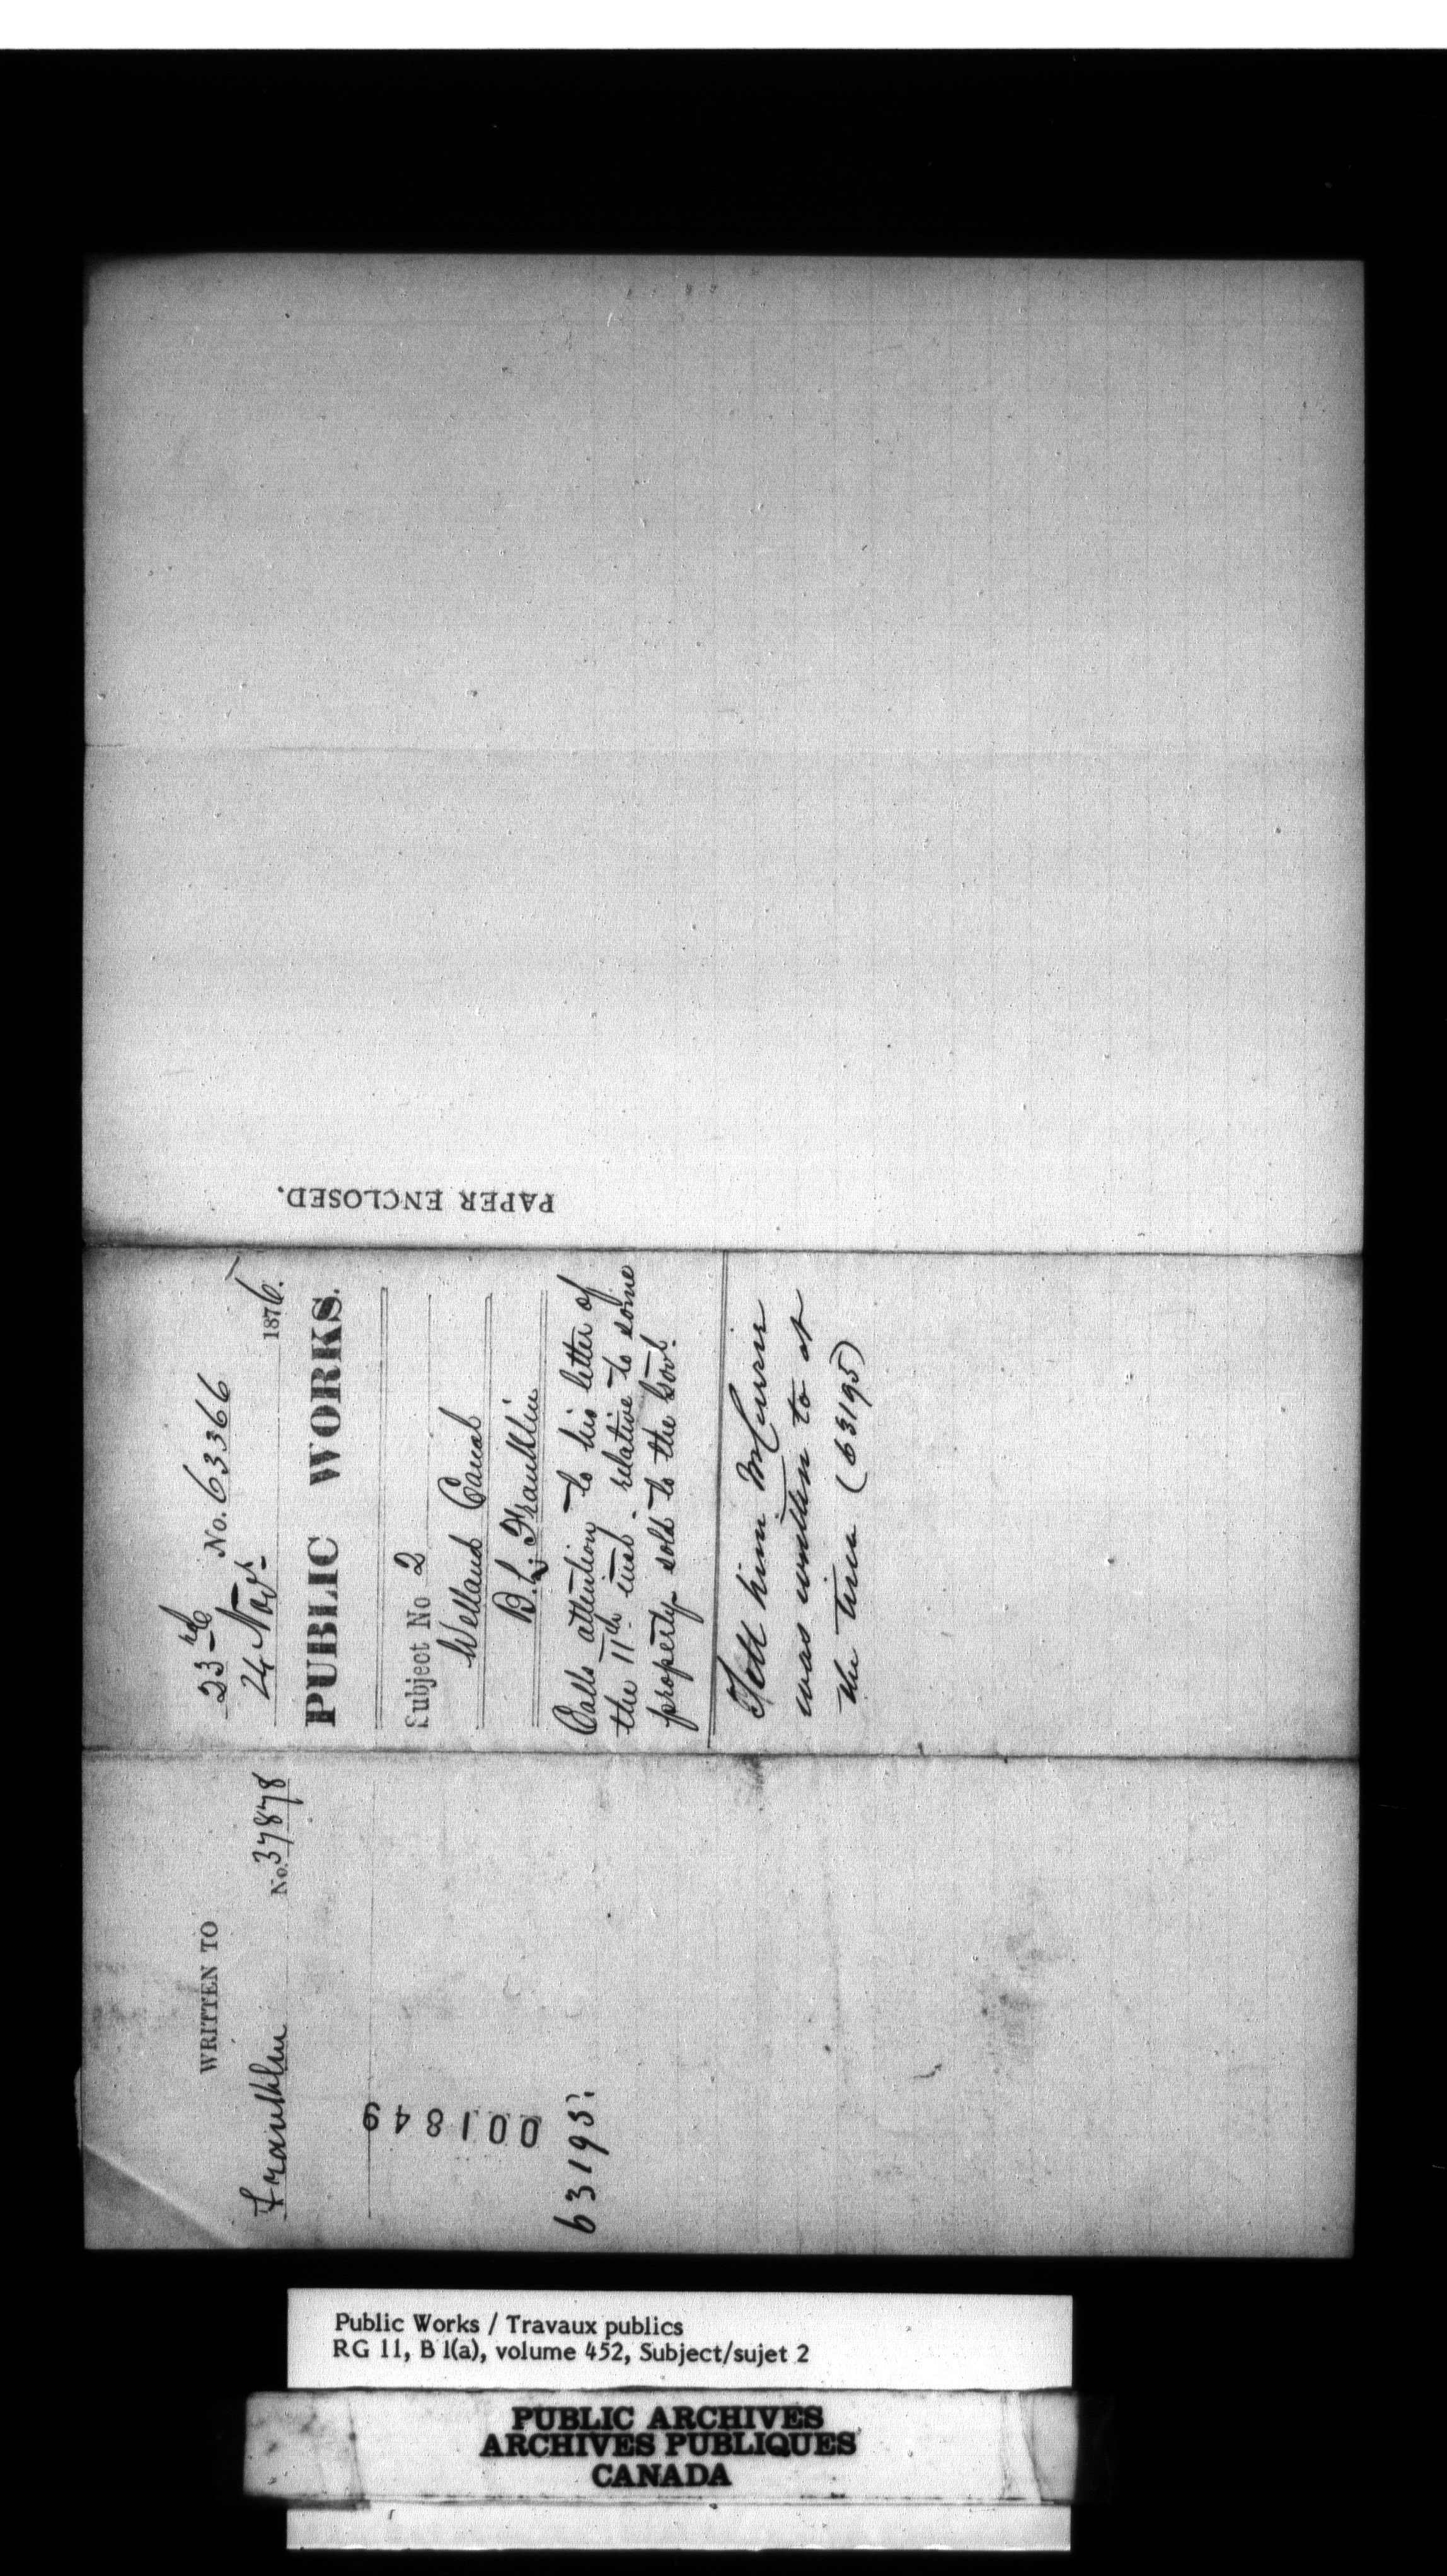 PAPER ENCLOSED.
23rd
No. 63366
24 Novr. 1876.
PUBLIC WORKS.
Subject No 2
Welland Canal
B. L. Franklin
Calls attention to his letter of
the 11th inst. relative to some
property sold to the Govt.
Tell him McCurrie
was written to at
the time (63195)
WRITTEN TO
Franklin No. 37878
001849
63195.
Public Works / Travaux publics
RG 11, B 1(a), volume 452, Subject/sujet 2
PUBLIC ARCHIVES
ARCHIVES PUBLIQUES
CANADA